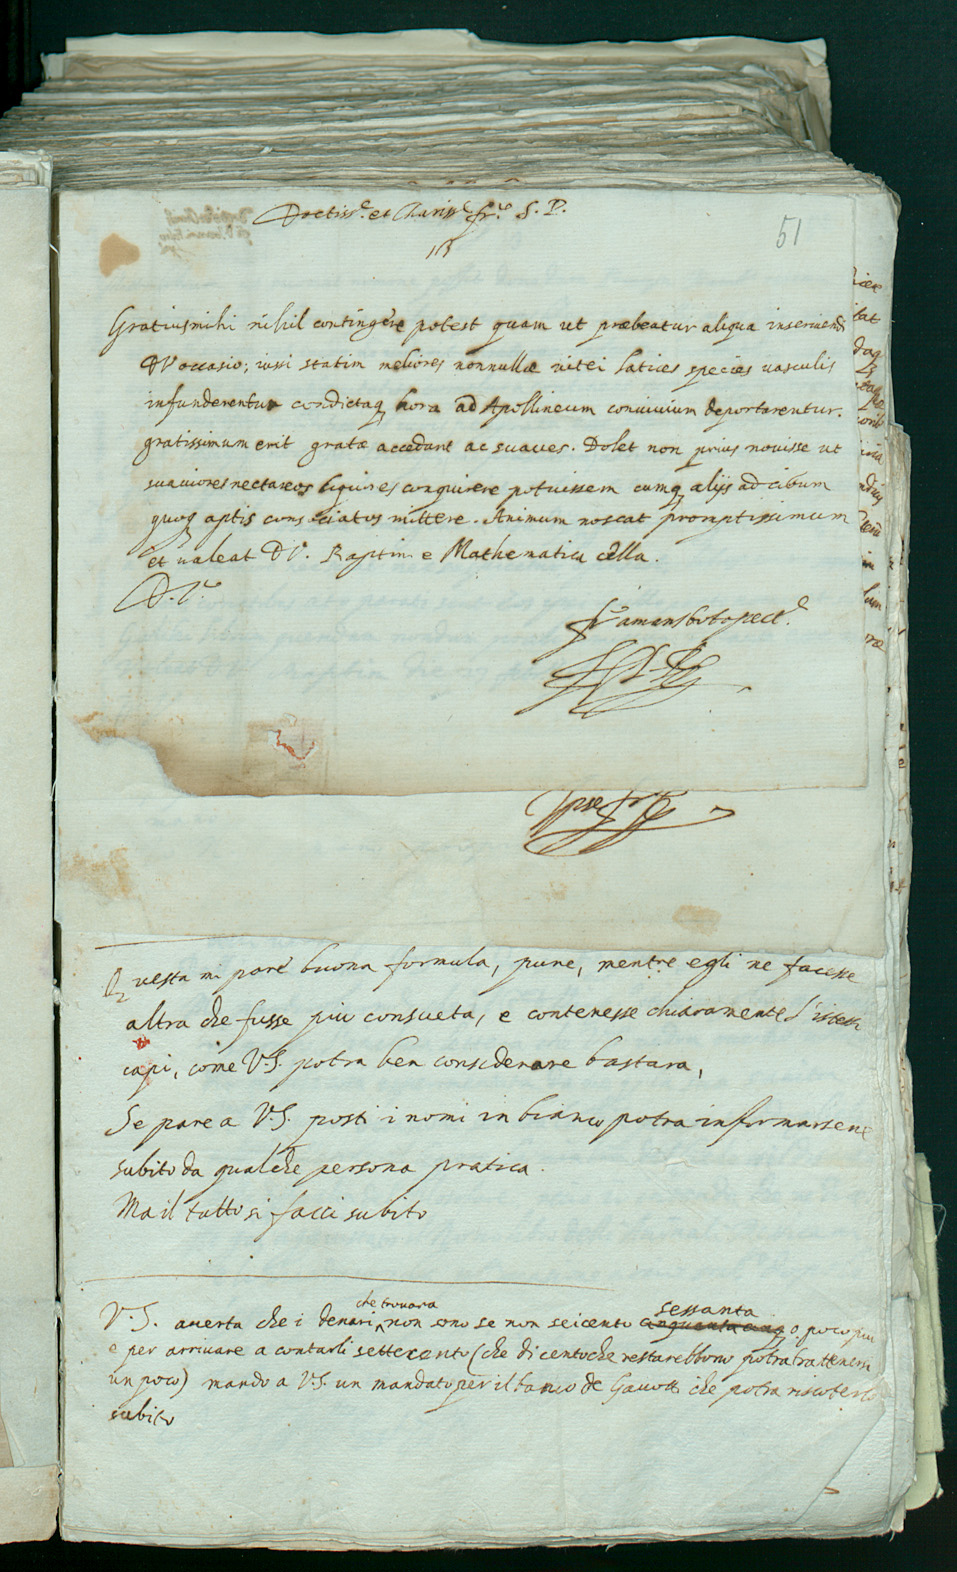 Doctiss.e et Chariss.e fr.r S. P.
51
Gratius mihi nihil contingere potest quam ut præbeatur aliqua inseruiendi
DV occasio; iussi statim meliores nonnullæ uitei laticis species uasculis
infunderentur condictaq hora ad Apollineum conuiuium deportarentur.
gratissimum erit gratæ accedant ac suaues. Dolet non prius nouisse ut
suauiores nectareos liquores conquirere potuissem cumq alijs ad cibum
quoq aptis consociatos mittere. Animum noscat promptissimum
et ualeat DV. Raptim e Mathematica cella.
D.V.
fr amans
Questa mi pare buona formula, pure, mentre egli ne facesse
altra che fusse piu consueta, e contenesse chiaramente l'istessi
capi, come V.S. potra ben considerare bastara,
Se pare a V.S. posti i nomi in bianco potra informarsene
subito da qualche persona pratica.
Ma il tutto si facci subito
che trouara sessanta
V.S. auerta che i denari non sono se non seicento o poco piu
e per arriuare a contarli settecento (che di cento che restarebbono potra trattenersi
un poco) mando a V.S. un mandato per il banco de Gauotti che potra riscoterlo
subito